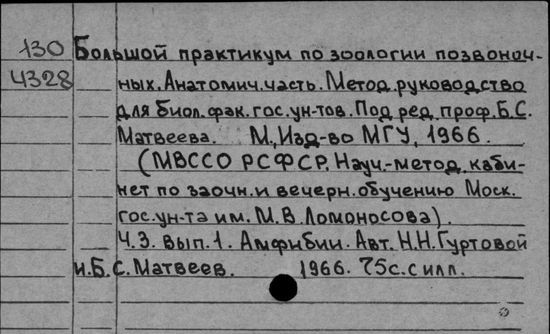 130 Большой практикум по зоологии позвоноч-
4328 ных. Анатомич. часть. Метод. руководство
для биол. фак. гос. ун-тов. Под ред. проф. Б.С.
Матвеева. М., Изд-во МГУ, 1966.
(МВССО РСФСР. Науч.-метод. каби-
нет по заочн. и вечерн. обучению Моск.
гос. ун-та им. М.В. Ломоносова).
Ч.3. вып.1. Амфибии. Авт. Н.Н. Гуртовой
и Б.С. Матвеев. 1966. 75с. с илл.